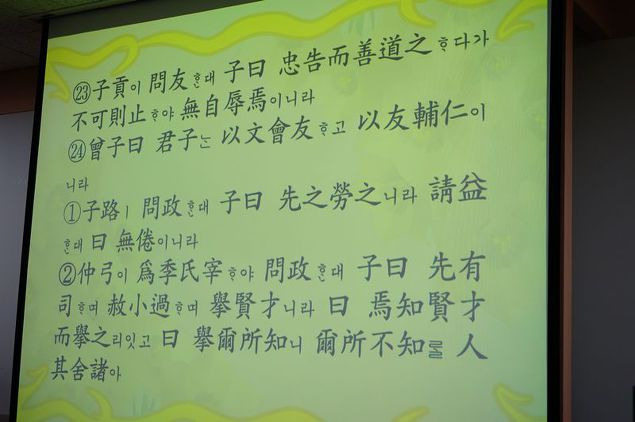 ㉓子貢이 問友ᄒᆞᆫ대 子曰 忠告而善道之ᄒᆞ다가
不可則止ᄒᆞ야 無自辱焉이니라
㉔曾子曰 君子ᄂᆞᆫ 以文會友ᄒᆞ고 以友輔仁이
니라
①子路ㅣ 問政ᄒᆞᆫ대 子曰 先之勞之니라 請益
ᄒᆞᆫ대 曰 無倦이니라
②仲弓이 爲季氏宰ᄒᆞ야 問政ᄒᆞᆫ대 子曰 先有
司ᄒᆞ며 赦小過ᄒᆞ며 擧賢才니라 曰 焉知賢才
而擧之리잇고 曰 擧爾所知니 爾所不知 人
其舍諸아